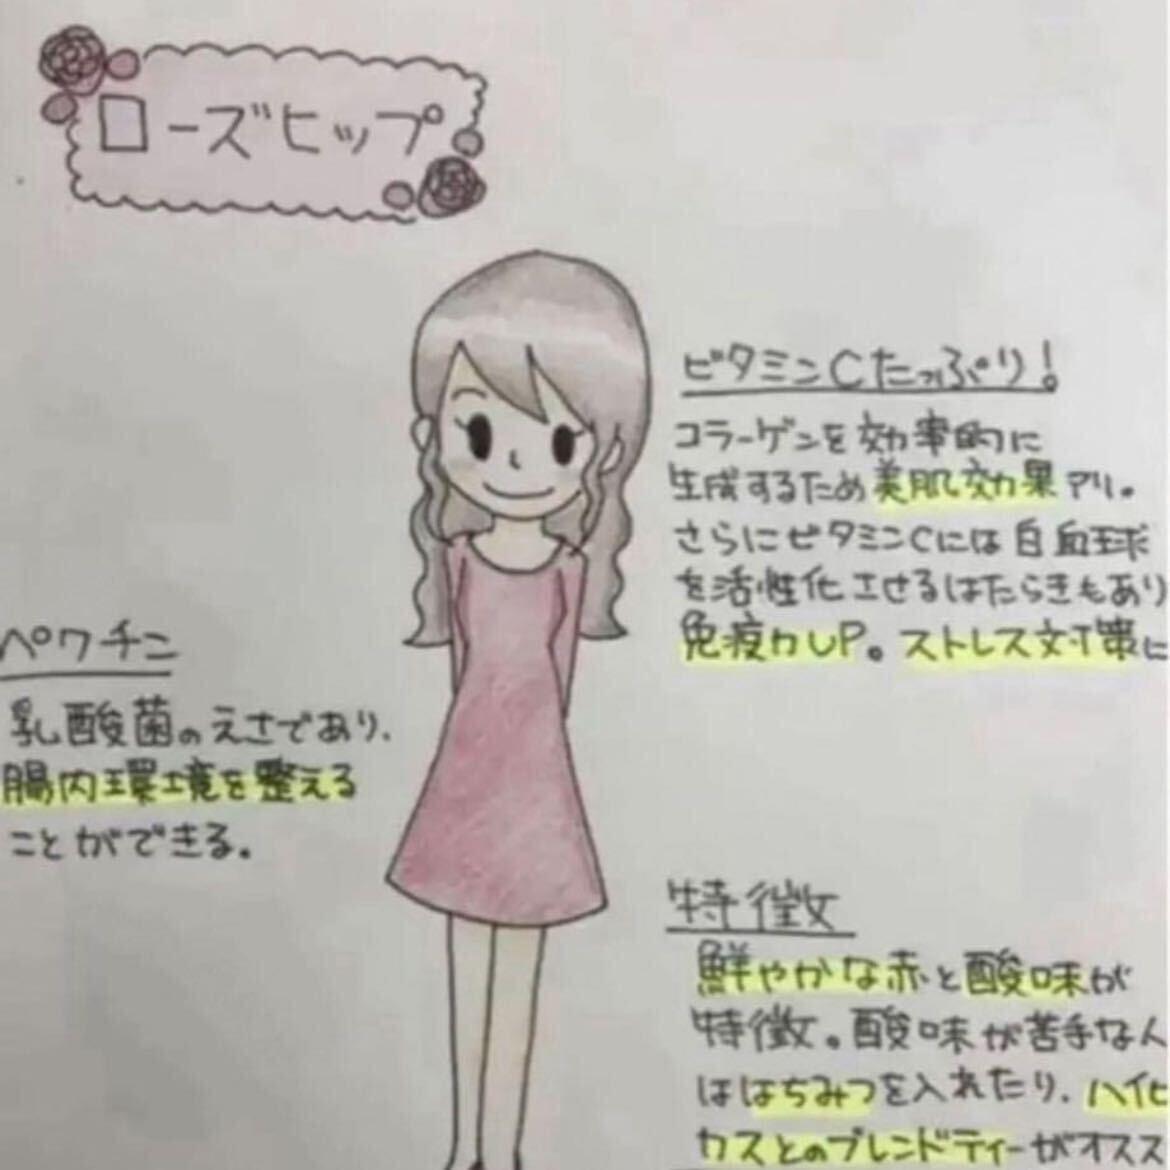 ローズヒップ
ビタミンCたっぷり!
コラーゲンを効率的に
生成するため美肌効果アリ。
さらにビタミンCには白血球
を活性化させるはたらきもあり
免疫力UP。ストレス対策に
ペクチン
乳酸菌のえさであり、
腸内環境を整える
ことができる。
特徴
鮮やかな赤と酸味が
特徴。酸味が苦手な人
ははちみつを入れたり、ハイビ
カスとのブレンドティーがオスス